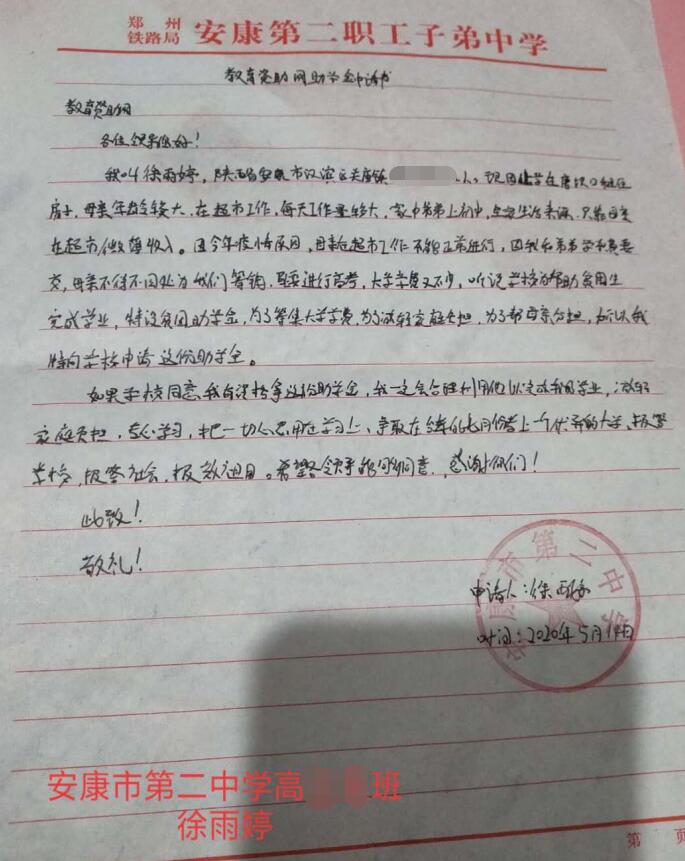 郑州
铁路局 安康第二职工子弟中学
教育资助网助学金申请书
教育资助网
各位领导您好!
我叫徐雨婷，陕西省安康市汉滨区关庙镇 人。现因上学在 租住
房子，母亲年龄较大，在超市工作，每天工作量较大，家中弟弟上初中，生活来源，只靠母亲
在超市微薄收入。因今年疫情原因，母亲在超市工作不能正常进行，因我和弟弟学费要
交，母亲不得不四处为我们筹钱，马上要进行高考，大学学费又不少，听说学校为帮助贫困生
完成学业，特设贫困助学金，为了筹集大学学费，为了减轻家庭负担，为了帮母亲分担，所以我
特向学校申请这份助学金。
如果学校同意我有资格拿这份助学金，我一定会合理利用他以完成我的学业，减轻
家庭负担，专心学习，把一切心思用在学习上，争取在今年的七月份考上一个优异的大学，报答
学校，报答社会，报效祖国。希望各领导能同意，感谢你们!
此致!
敬礼!
申请人：徐雨婷
时间：2020年5月 日
安康市第二中学
安康市第二中学高 班
徐雨婷
第 页